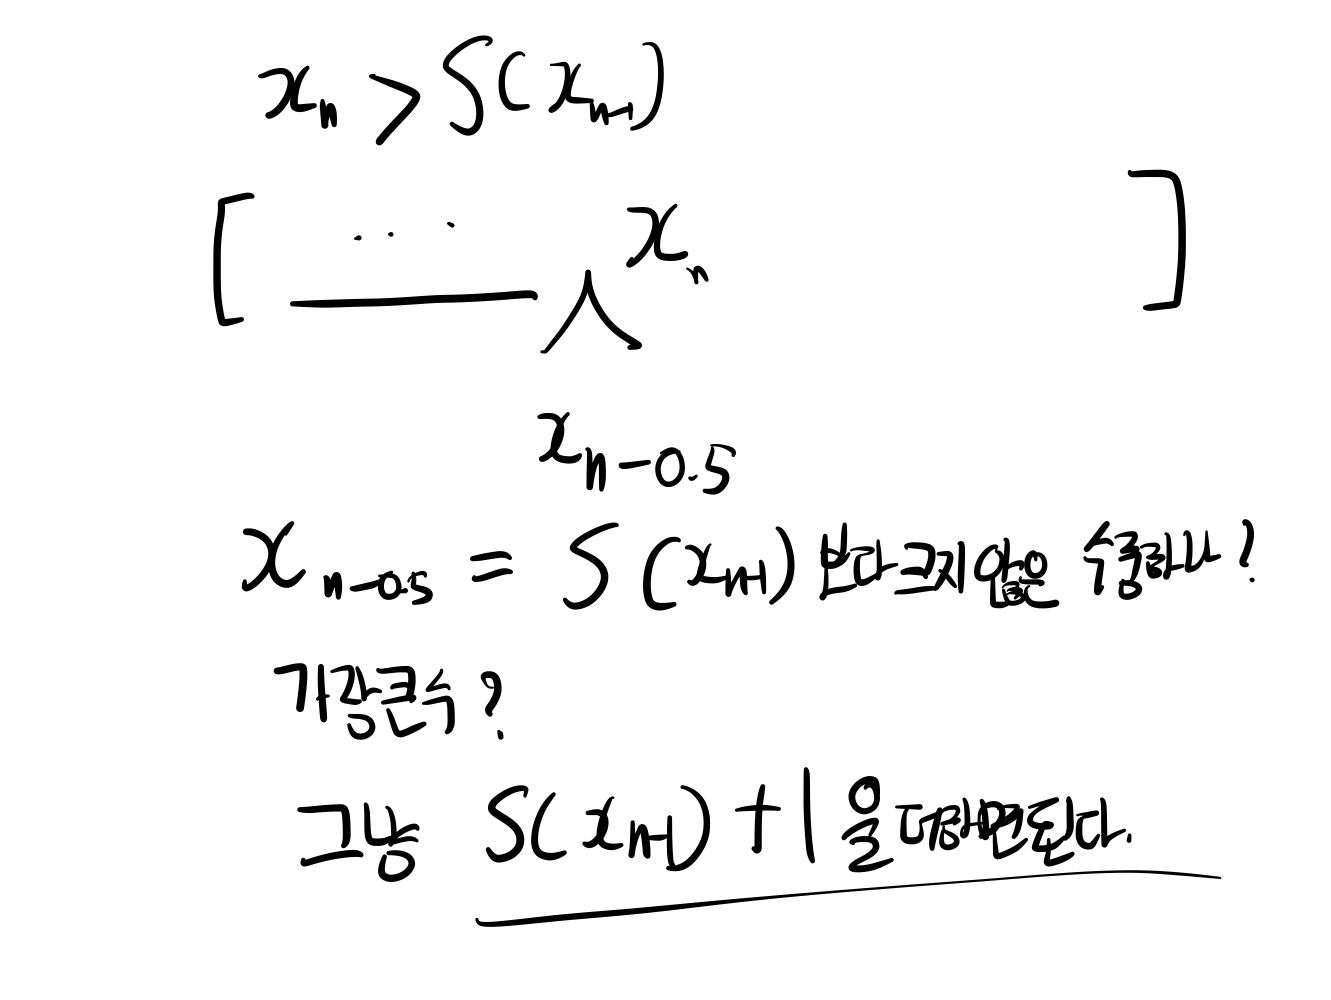 x_n > S(x_{n-1})
[ . . . x_n ]
x_{n-0.5}
x_{n-0.5} = S(x_{n-1}) 보다 크지 않은 수중 하나?
가장 큰 수?
그냥 S(x_{n-1}) + 1 을 더하면 된다.